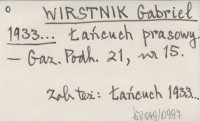 WIRSTNIK Gabriel
1933... Łańcuch prasowy.
— Gaz. Podh. 21, nr 15.
Zob. też: Łańcuch 1933...